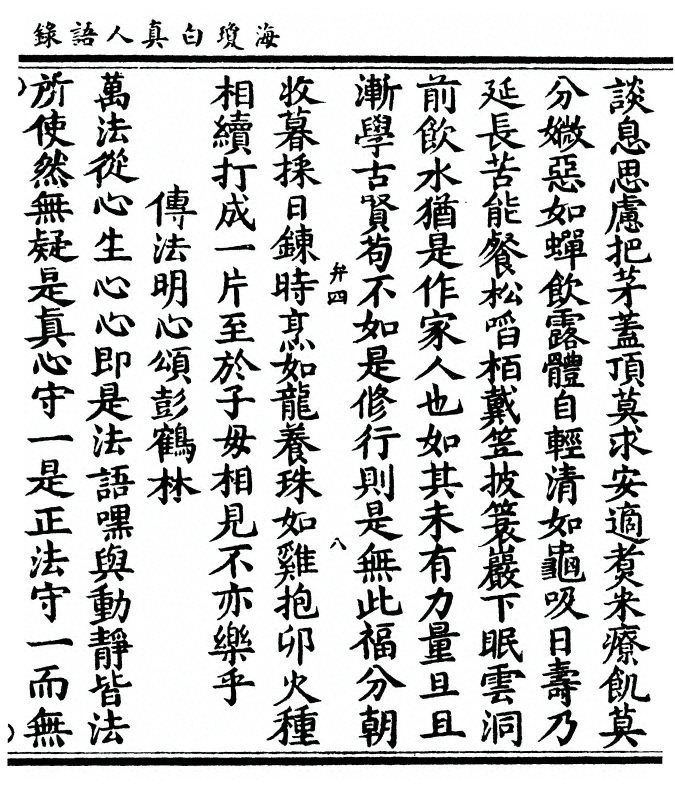 海瓊白真人語錄
談息思慮把茅蓋頂莫求安適煑米療飢莫
分媺惡如蟬飲露體自輕清如龜吸日壽乃
延長苦能餐松啗栢戴笠披簑巖下眠雲洞
前飲水猶是作家人也如其未有力量且且
漸學古賢苟不如是修行則是無此福分朝
弁四
八
收暮採日鍊時烹如龍養珠如雞抱卵火種
相續打成一片至於子母相見不亦樂乎
傳法明心頌彭鶴林
萬法從心生心心即是法語嘿與動靜皆法
所使然無疑是真心守一是正法守一而無